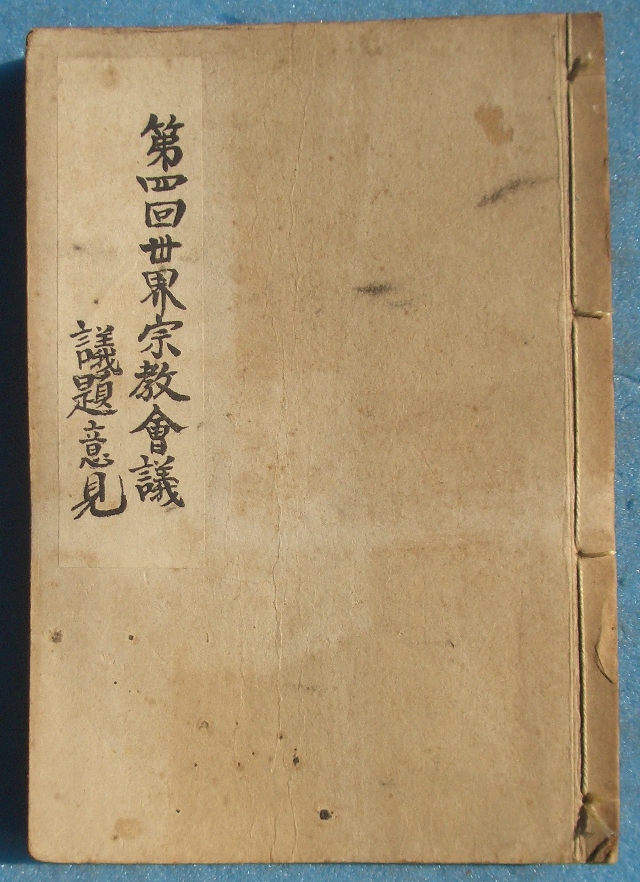 第四回世界宗教會議
議題意見